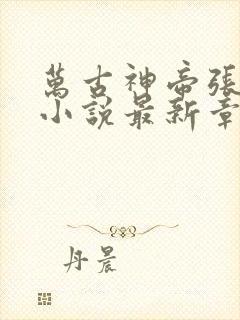 萬古神帝張
小說最新章
丹晨